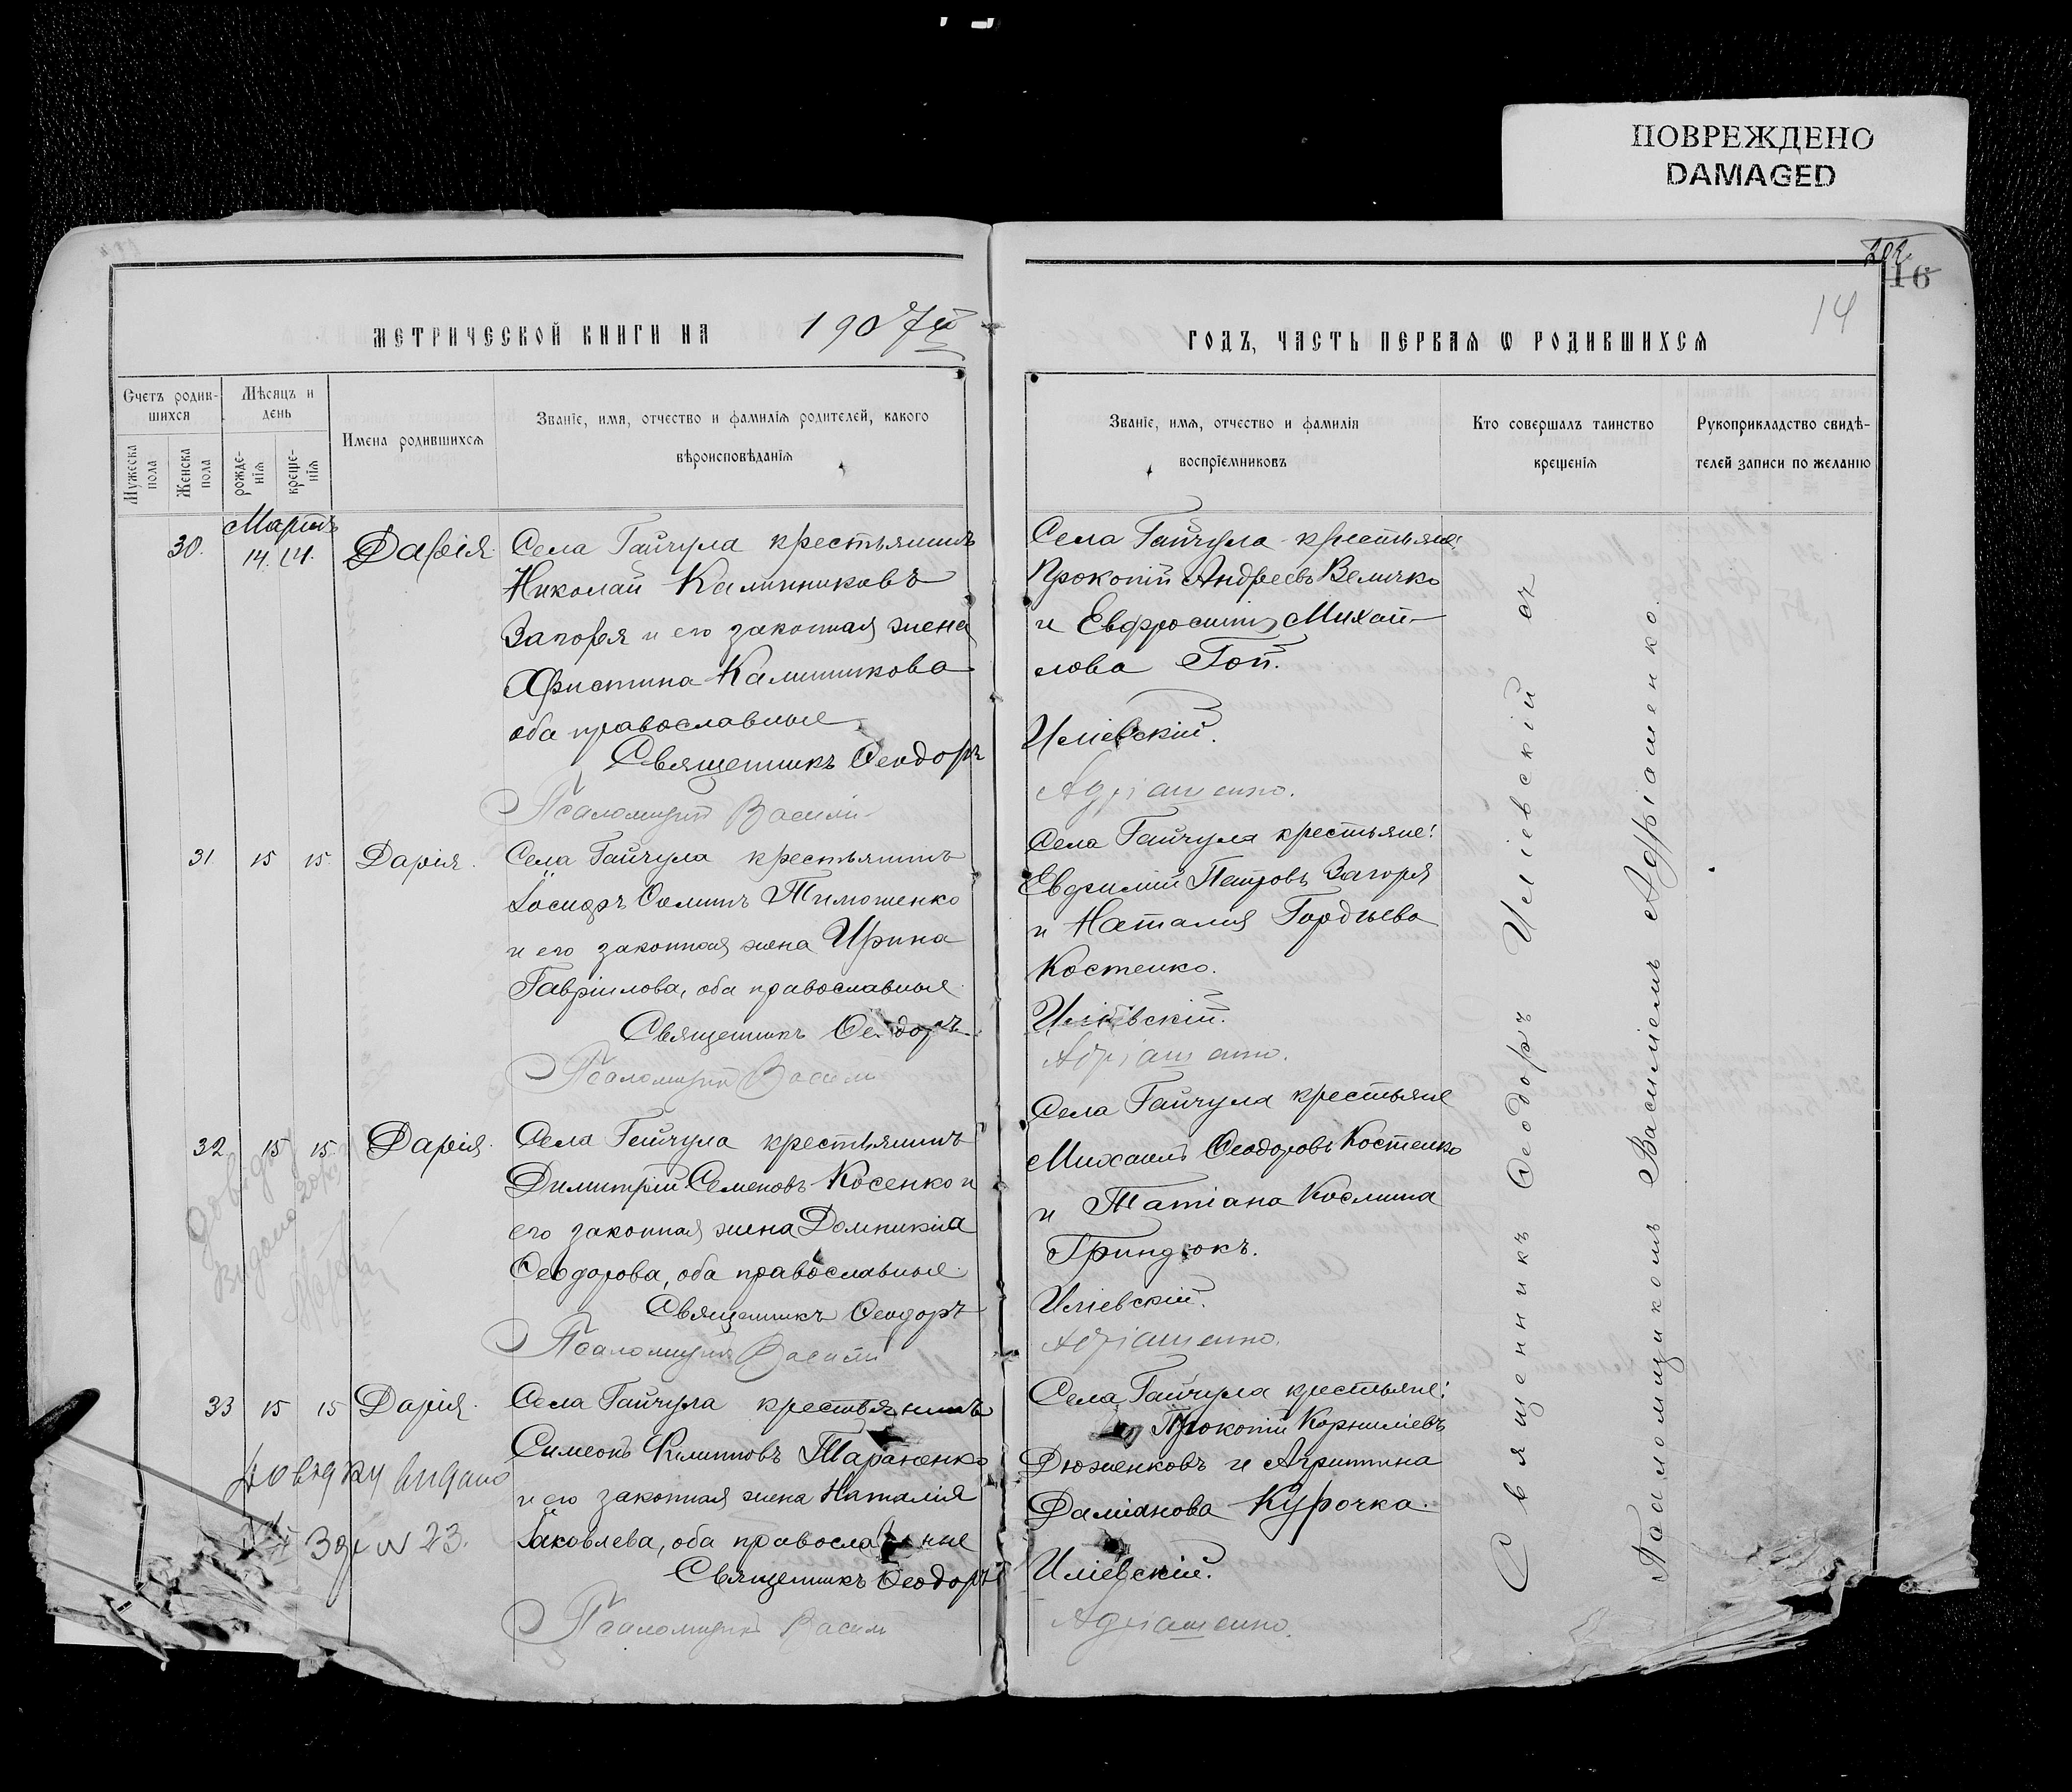 ПОВРЕЖДЕНО
DAMAGED
16
14
МЕТРИЧЕСКОЙ КНИГИ НА 1907й
ГОДЪ, ЧАСТЬ ПЕРВАЯ Ѡ РОДИВШИХСЯ
Счетъ родив-
шихся
Мужеска
пола
Женска
пола
Мѣсяцъ и
день
рожде-
нія
креще-
нія
Имена родившихся
Званіе, имя, отчество и фамилія родителей, какого
вѣроисповѣданія
Званіе, имя, отчество и фамилія
воспріемниковъ
Кто совершалъ таинство
крещенія
Рукоприкладство свидѣ-
телей записи по желанію
Мартъ
30. 14. 14. Дарія. Села Гайчула крестьянинъ
Николай Калинниковъ
Загоря и его законная жена
Христина Калинникова
оба православные
Священникъ Ѳеодоръ
Псаломщикъ Василій
Села Гайчула крестьяне:
Прокопій Андреевъ Величко
и Евфросинія Михай-
лова Гоп.
Иліевскій.
Адріашенко.
31. 15 15. Дарія. Села Гайчула крестьянинъ
Іосифъ Ѳоминъ Тимошенко
и его законная жена Ирина
Гавріилова, оба православные
Священникъ Ѳеодоръ
Псаломщикъ Василій
Села Гайчула крестьяне:
Евфимій Петровъ Загоря
и Наталія Гордѣева
Костенко.
Иліевскій.
Адріашенко.
32 15 15. Дарія. Села Гайчула крестьянинъ
Димитрій Семеновъ Косенко и
его законная жена Домникіа
Ѳеодорова, оба православные
Священникъ Ѳеодоръ
Псаломщикъ Василій
Села Гайчула крестьяне
Михаилъ Ѳеодоровъ Костенко
и Татіана Космина
Гриндюкъ.
Иліевскій.
Адріашенко.
Довідку
видано
33 15 15 Дарія. Села Гайчула крестьянинъ
Симеонъ Филипповъ Тараненко
и его законная жена Наталія
Іаковлева, оба православные
Священникъ Ѳеодоръ
Псаломщикъ Василій
Села Гайчула крестьяне:
Прокопій Корниліевъ
Дюженковъ и Агриппина
Даміанова Курочка.
Иліевскій.
Адріашенко.
Довідку видано
23.
Священникъ Ѳеодоръ Иліевскій съ
Псаломщикомъ Василіемъ Адріашенко.